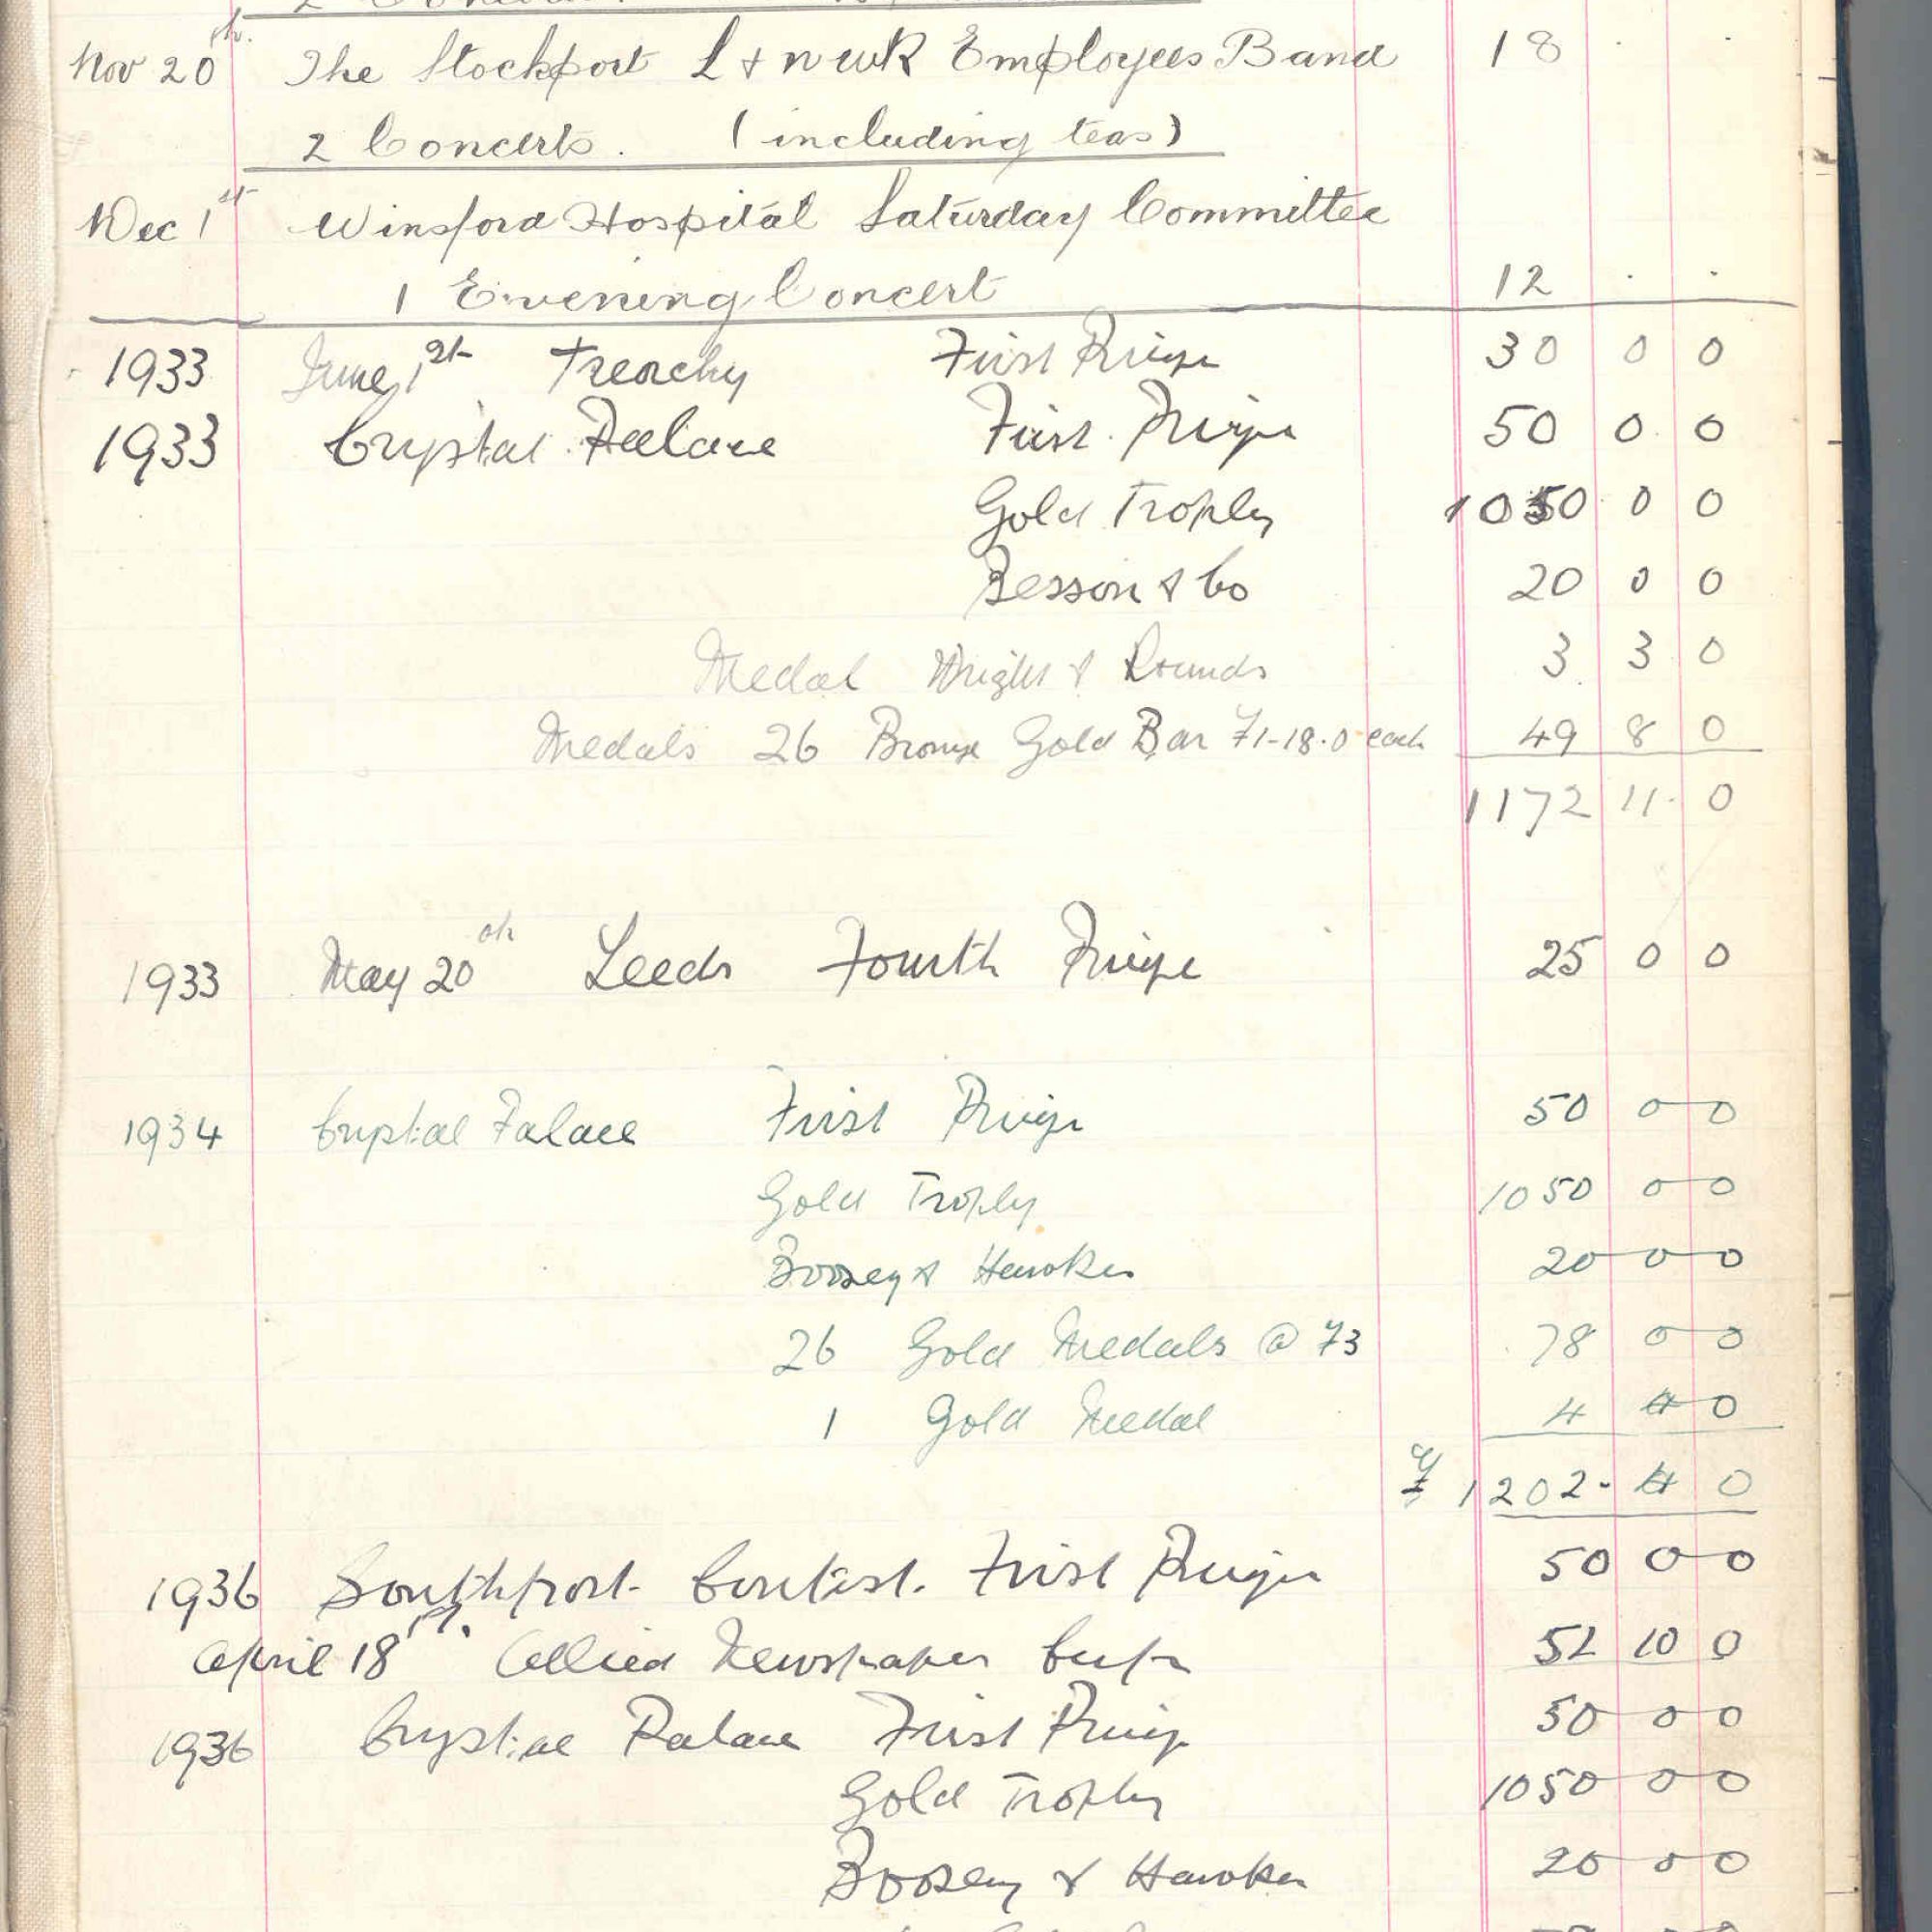 Nov 20th. The Stockport L & NWR Employees Band 18 . .
2 Concerts. (including teas)
Dec 1st Winsford Hospital Saturday Committee
1 Evening Concert 12 . .
1933 June 1st Treorchy First Prize 30 0 0
1933 Crystal Palace First Prize 50 0 0
Gold Trophy 1050 0 0
Besson & Co 20 0 0
Medal Wright & Rounds 3 3 0
Medals 26 Bronze Gold Bar £1-18-0 each 49 8 0
1172 11 0
1933 May 20th Leeds Fourth Prize 25 0 0
1934 Crystal Palace First Prize 50 0 0
Gold Trophy 1050 0 0
Boosey & Hawkes 20 0 0
26 Gold Medals @ £3 78 0 0
1 Gold Medal 4 4 0
£ 1202 - 4 0
1936 Southport Contest. First Prize 50 0 0
April 18th. Allied Newspaper Cup 52 10 0
1936 Crystal Palace First Prize 50 0 0
Gold Trophy 1050 0 0
Boosey & Hawkes 20 0 0